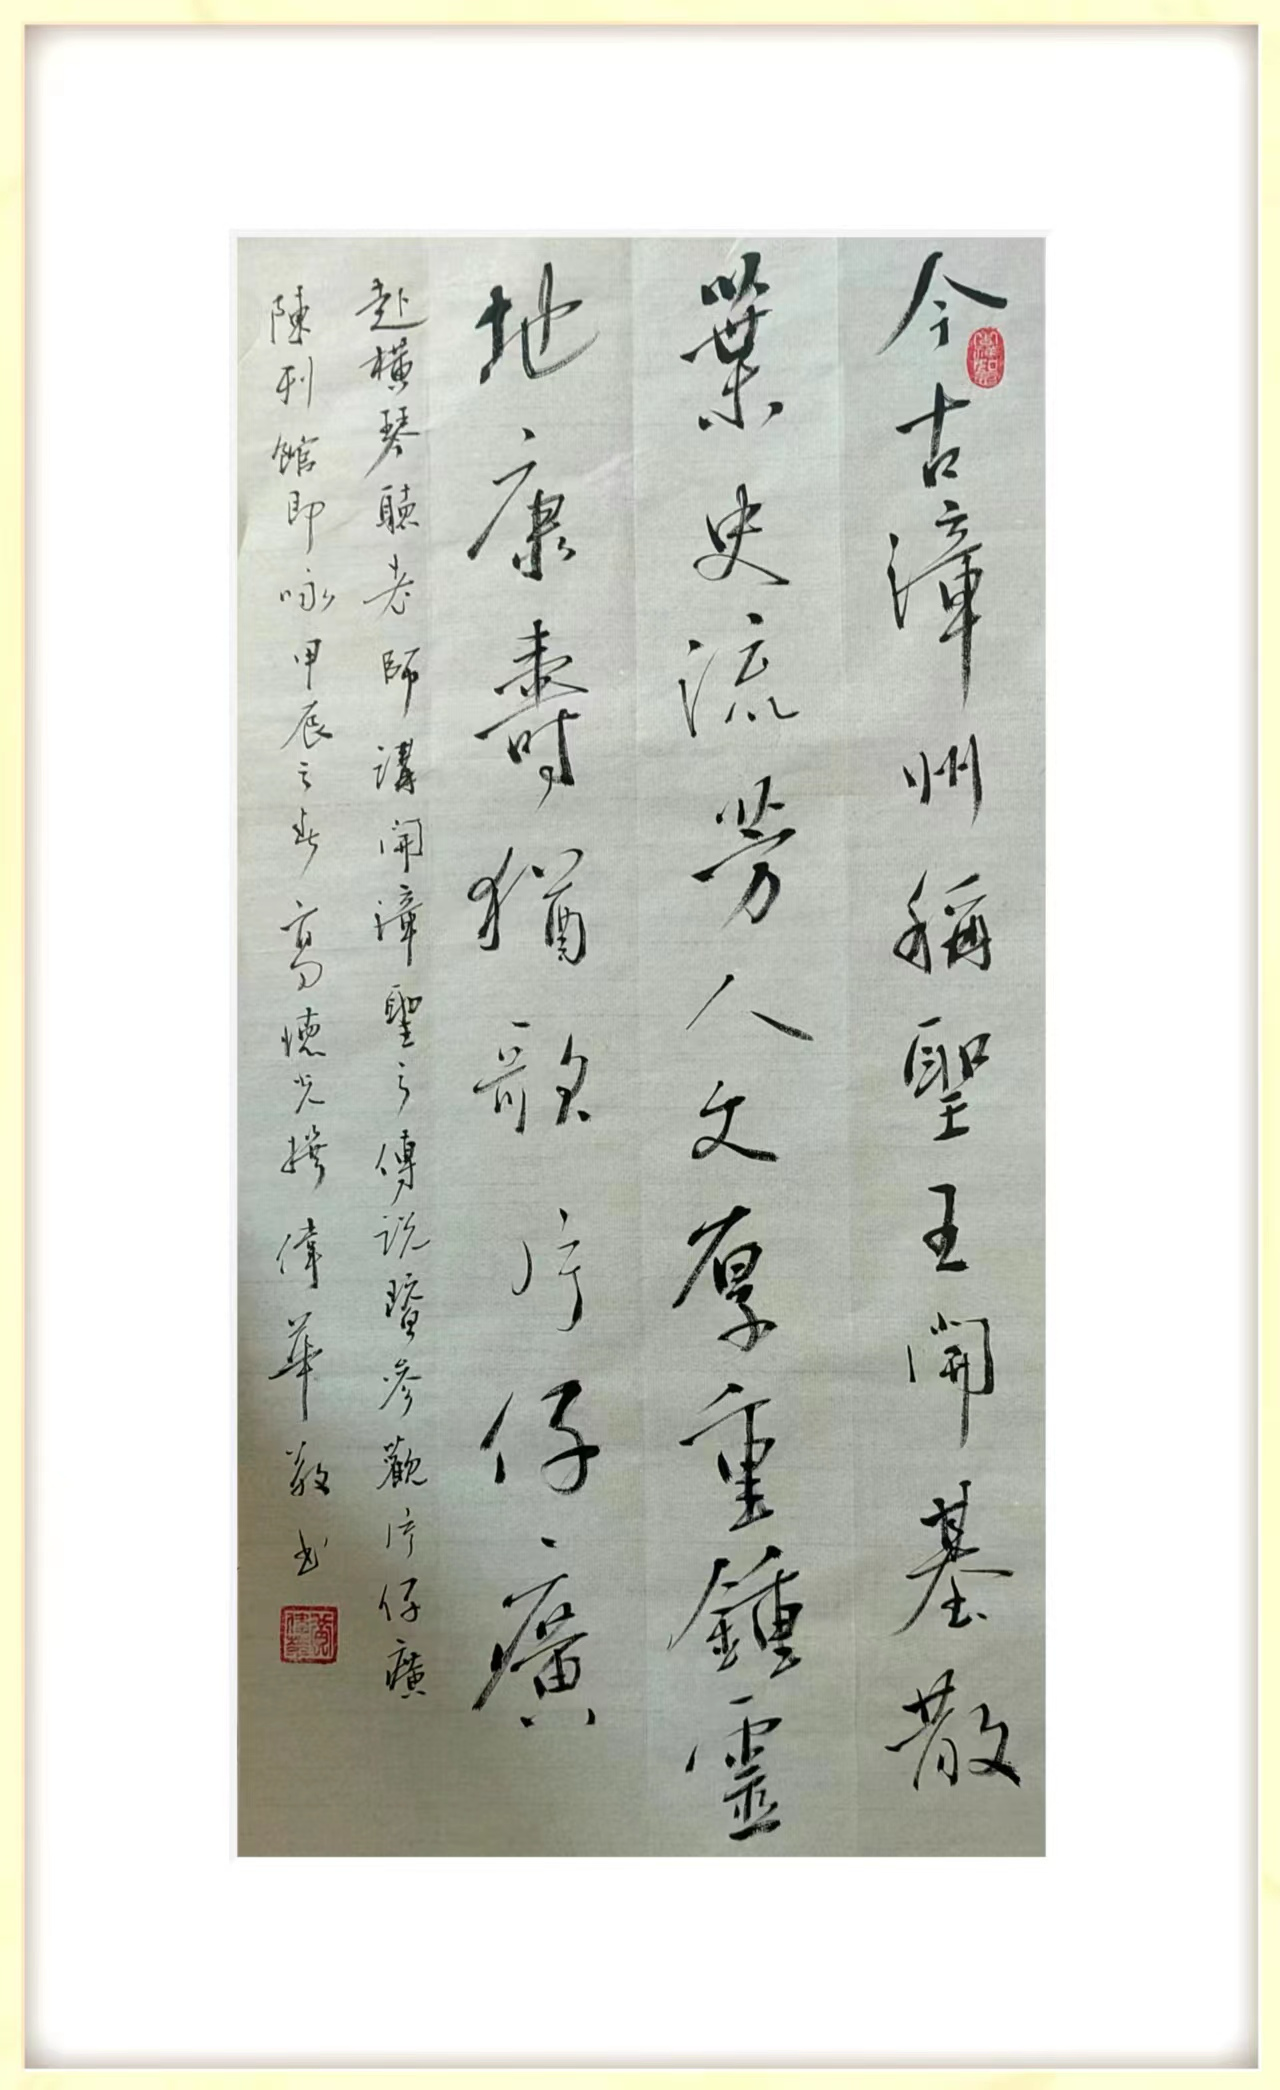 今古漳州稱聖王開基散
葉史流芳人文厚重鍾靈
地康壽猶歌片仔癀
赴橫琴聽老師講開漳聖之傳說暨參觀片仔癀
陳列館即咏甲辰之春高德光撰偉華敬书